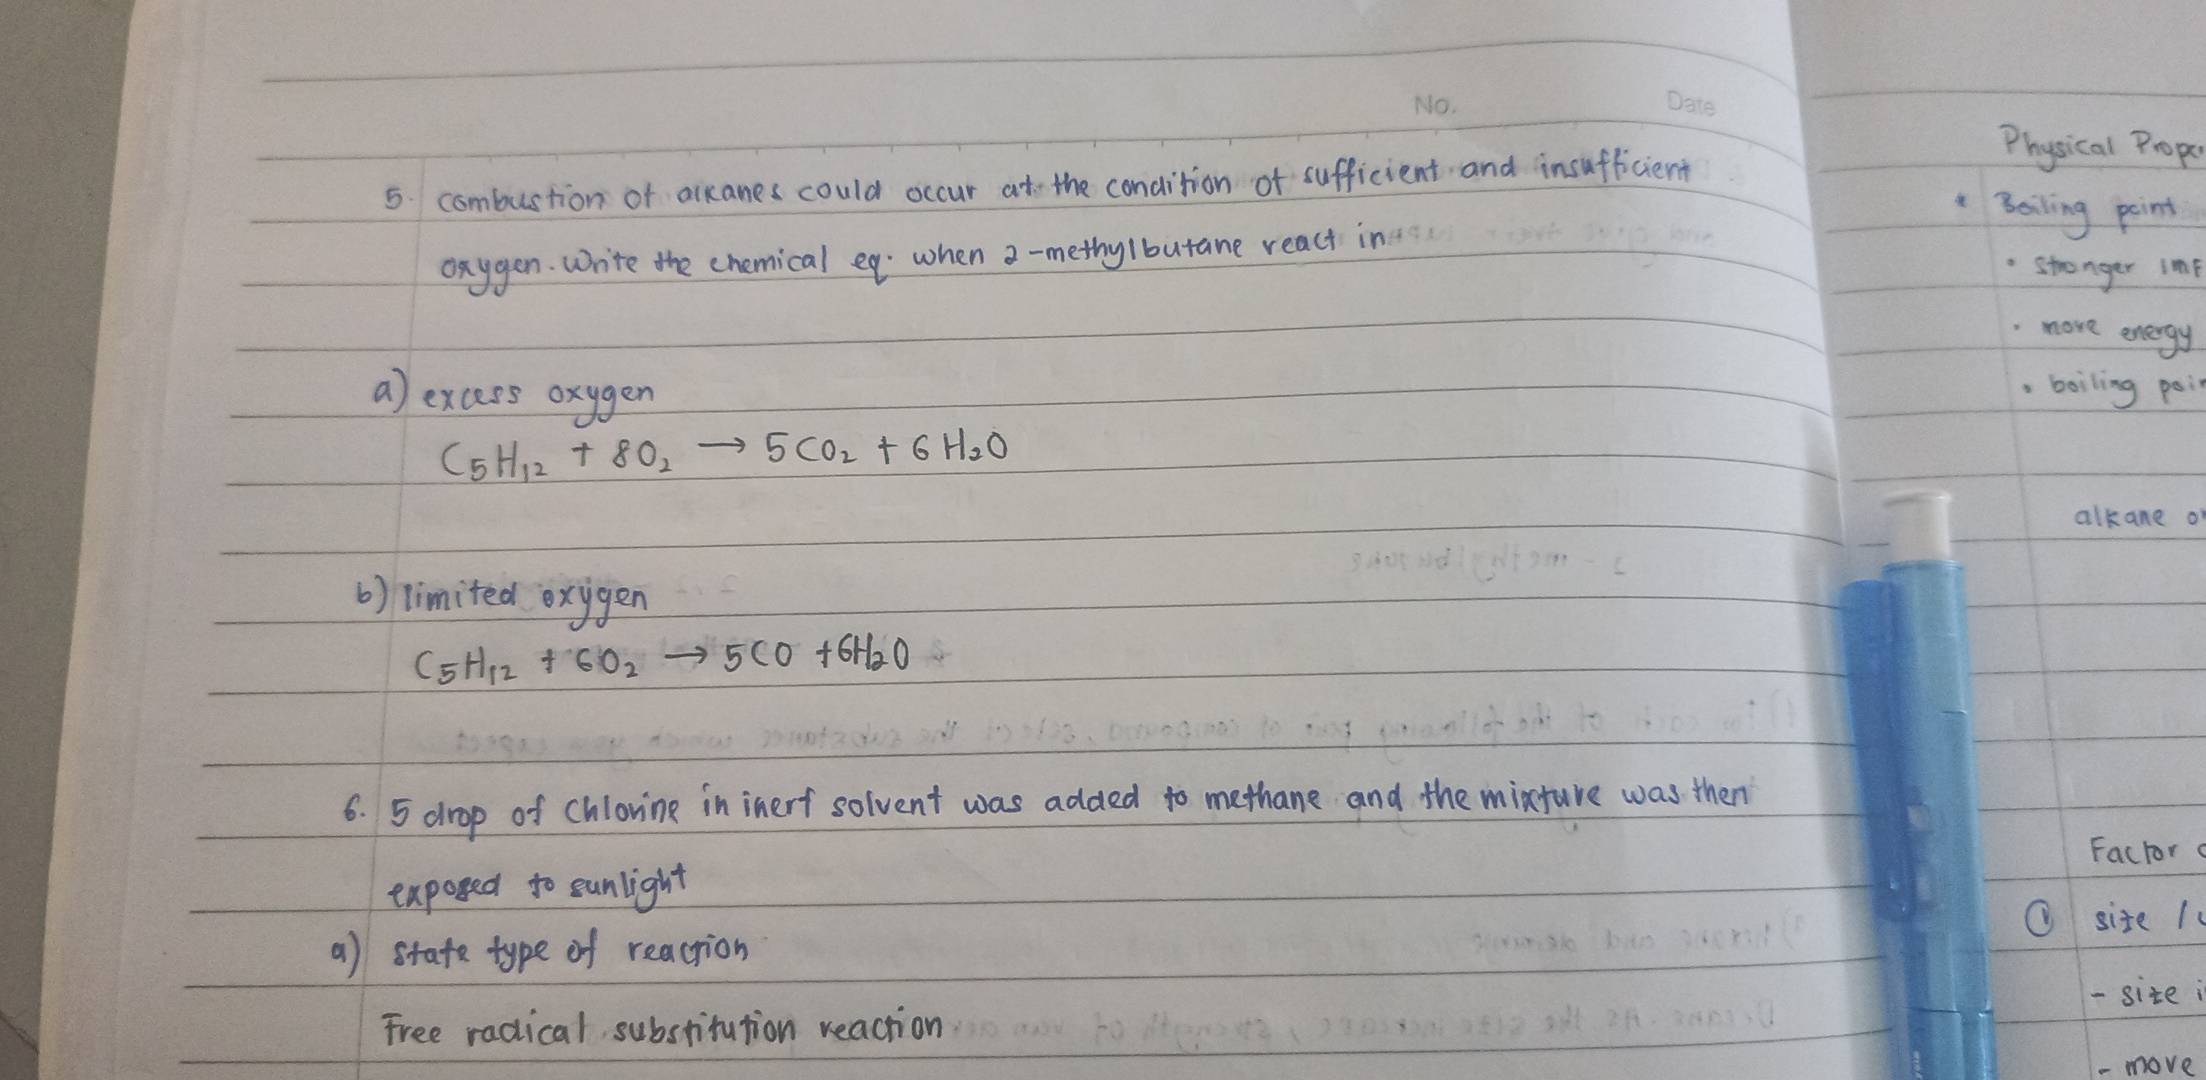 No. Date
5. combustion of alkanes could occur at the condition of sufficient and insufficient
oxygen. Write the chemical eq. when 2-methylbutane react in
a) excess oxygen
C₅H₁₂ + 8O₂ → 5CO₂ + 6H₂O
b) limited oxygen
C₅H₁₂ + 6O₂ → 5CO + 6H₂O
6. 5 drop of chlorine in inert solvent was added to methane and the mixture was then
exposed to sunlight
a) state type of reaction
Free radical substitution reaction
Physical
* Boiling point
• stronger IMF
• more energy
• boiling
alkane
Factor
① size /
- size
- move